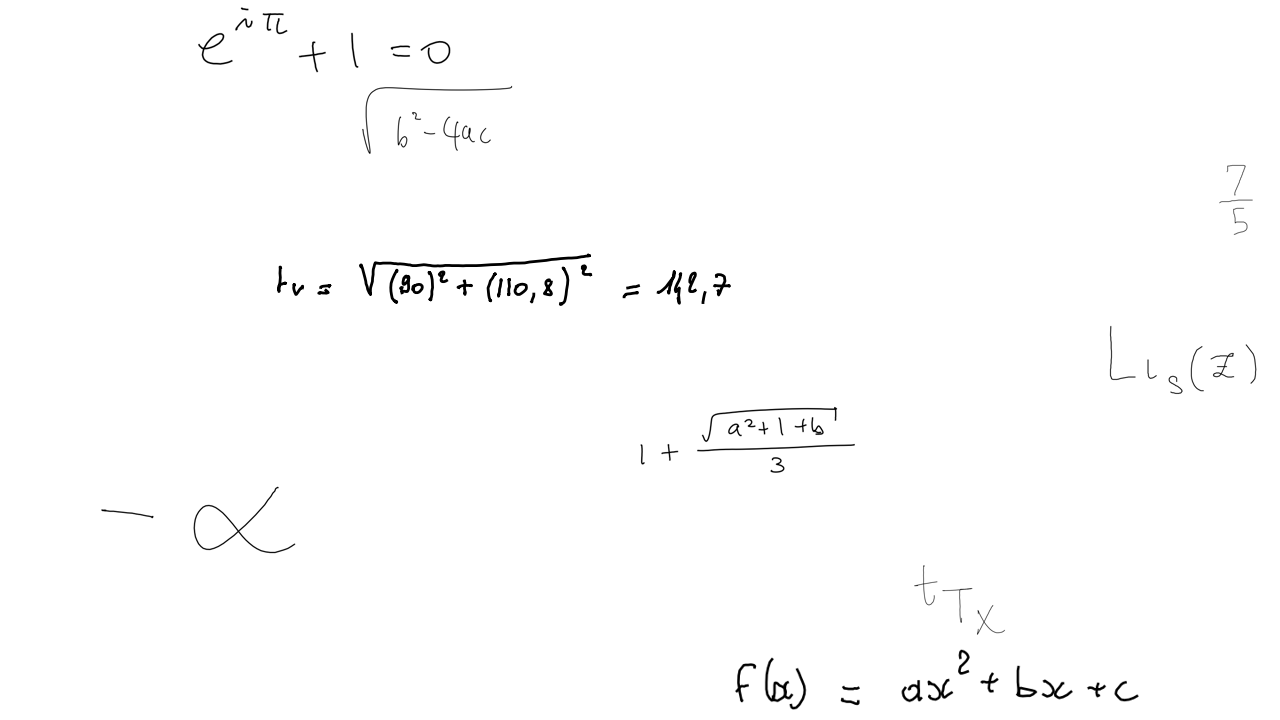 e^{iπ} + 1 = 0
√(b² - 4ac)
7/5
t_v = √((90)² + (110,8)²) = 142,7
Li_s(z)
1 + √(a² + 1 + b)/3
- α
t_{T_x}
f(x) = ax² + bx + c